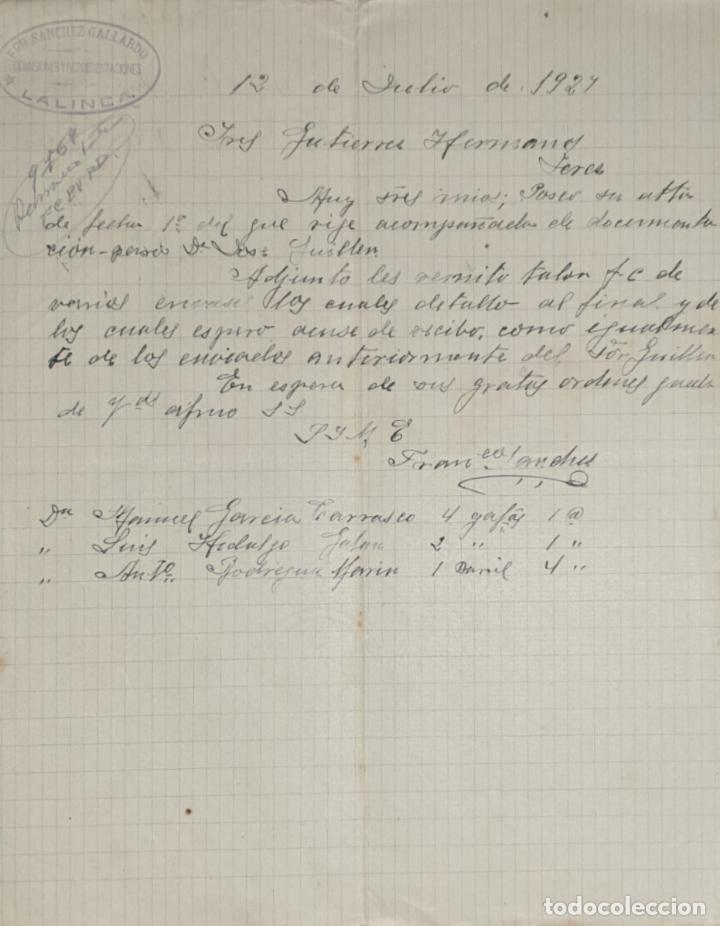 FCO SANCHEZ GALLARDO
COMISIONES Y REPRESENTACIONES
LA LINEA
12 de Julio de 1927
Sres Gutierres Hermanos
Jeres
Muy Sres mios; Poseo su atta
de fecha 1º del que rige acompañada de documenta
ción para Dn José Guillen
Adjunto les remito talon f.c de
varios envases los cuales detallo al final y de
los cuales espero acuse de recibo, como igualmen
te de los enviados anteriormente del Sor Guillen
En espera de sus gratas ordenes queda
de Vds afmo SS
Q E S M
Franco Sanches
Dn Manuel Garcia Carrasco 4 gafas 1 @
" Luis Hidalgo Galan 2 " 1 "
" Anto Rodrigues Marin 1 Barril 4 "
todocoleccion.net